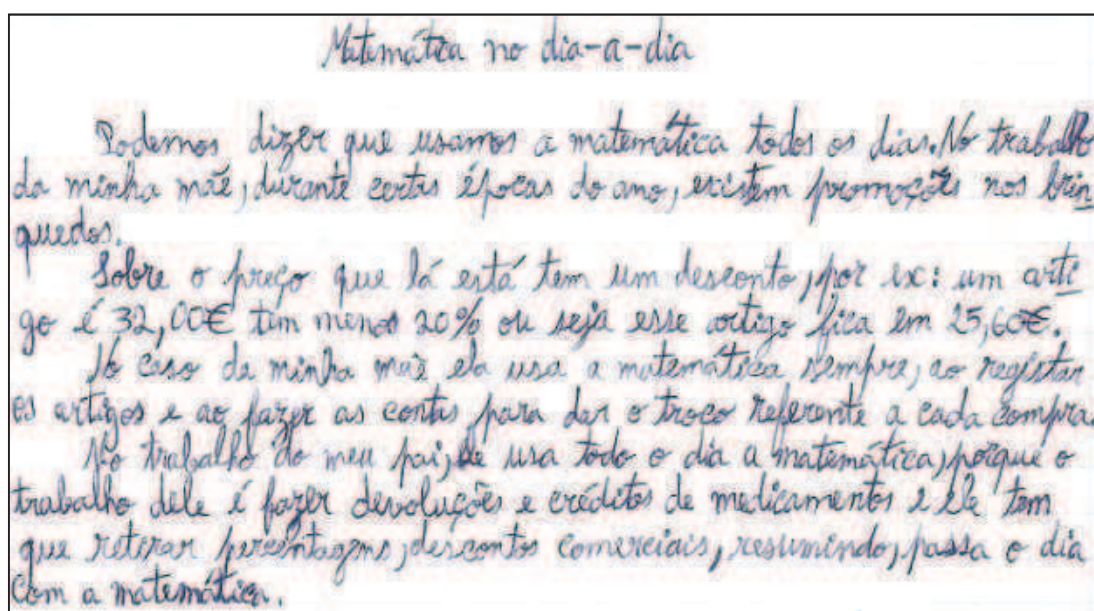 Matemática no dia-a-dia
Podemos dizer que usamos a matemática todos os dias. No trabalho
da minha mãe, durante certas épocas do ano, existem promoções nos brin-
quedos.
Sobre o preço que lá está tem um desconto, por ex: um arti-
go é 32,00€ tem menos 20% ou seja esse artigo fica em 25,60€.
No caso da minha mãe ela usa a matemática sempre, ao registar
os artigos e ao fazer as contas para dar o troco referente a cada compra.
No trabalho do meu pai, ele usa todo o dia a matemática, porque o
trabalho dele é fazer devoluções e créditos de medicamentos e ele tem
que retirar percentagens, descontos comerciais, resumindo, passa o dia
com a matemática.